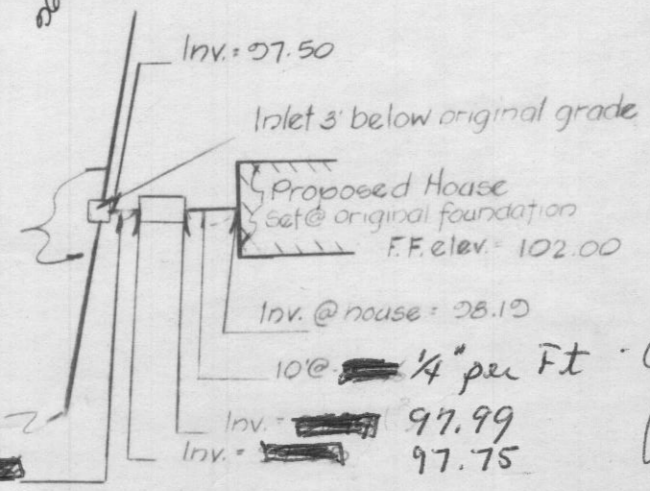 Inv. = 97.50
Inlet 3' below original grade
Proposed House
set @ original foundation
F.F. elev. = 102.00
Inv. @ house = 98.19
10' @ 1/4" per Ft
Inv. = 97.99
Inv. = 97.75